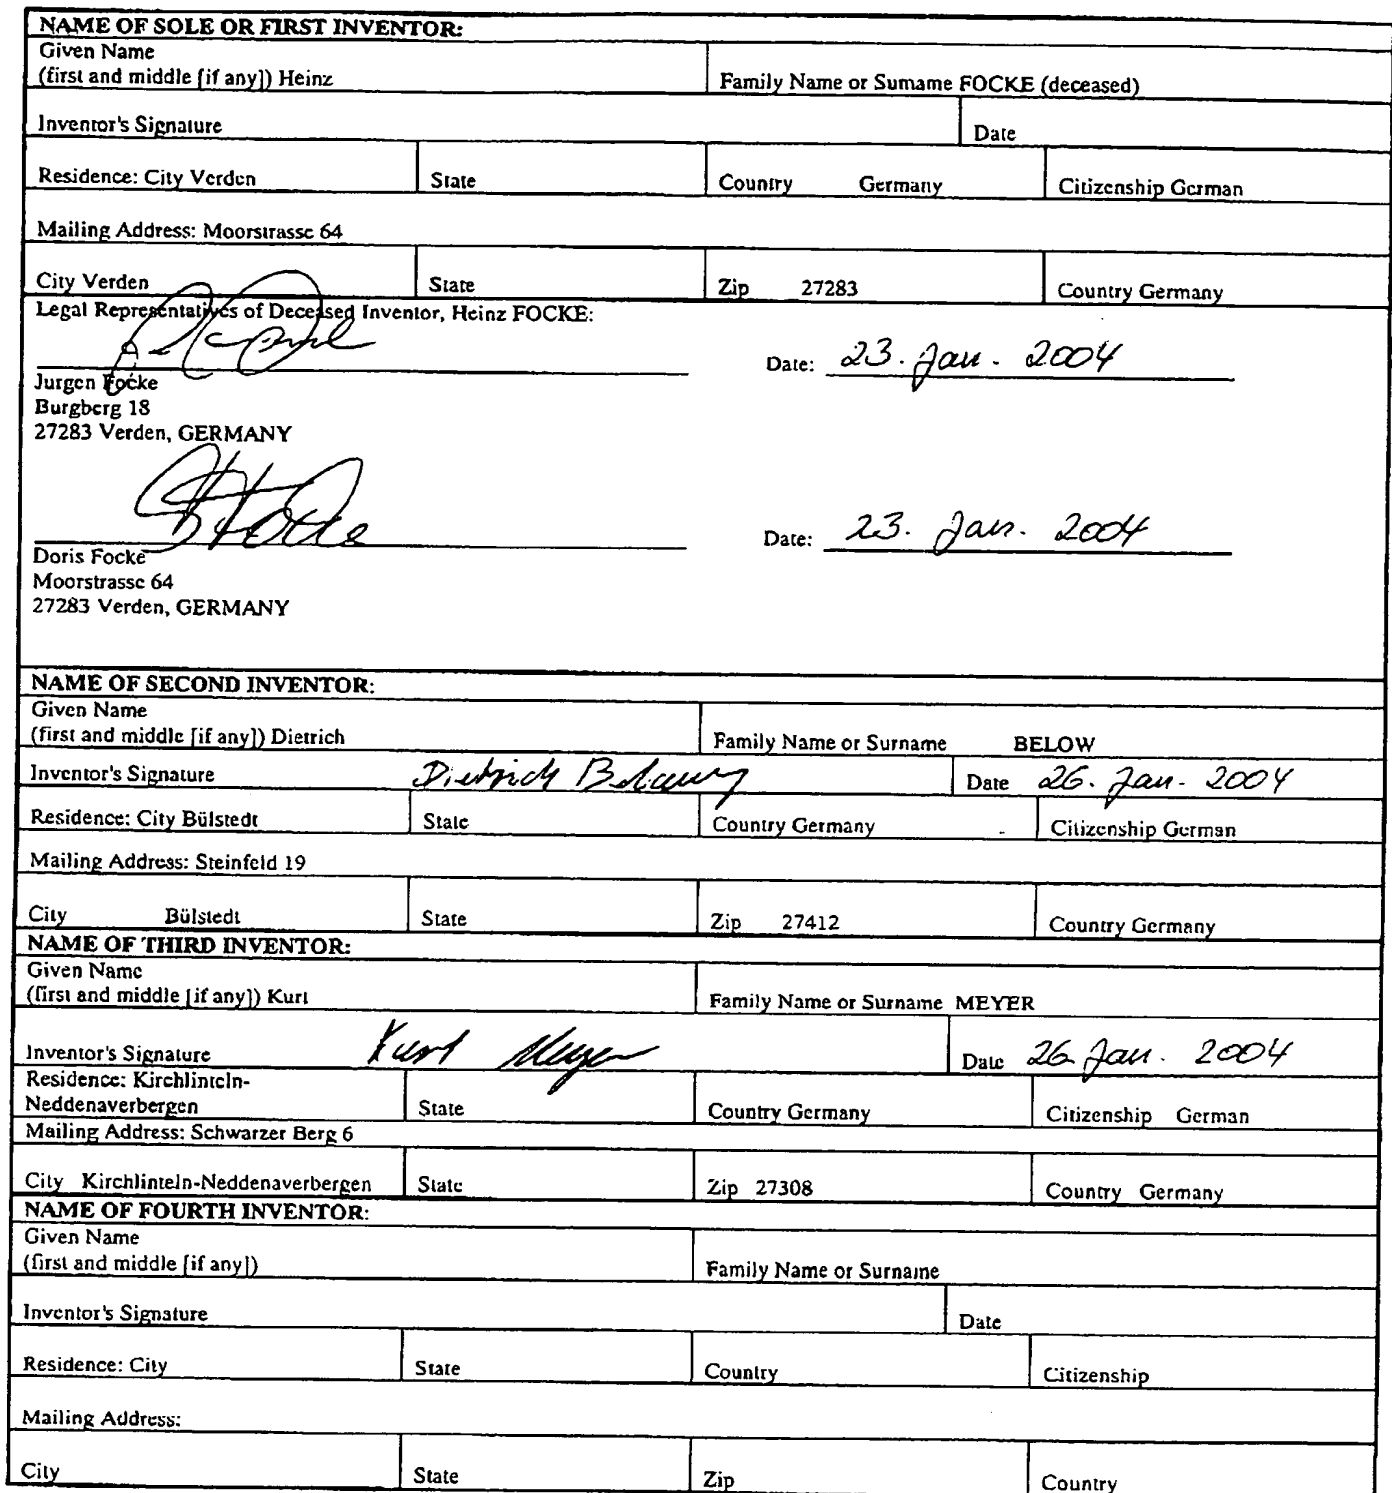 NAME OF SOLE OR FIRST INVENTOR:
Given Name
(first and middle [if any]) Heinz
Family Name or Surname FOCKE (deceased)
Inventor's Signature
Date
Residence: City Verden
State
Country Germany
Citizenship German
Mailing Address: Moorstrasse 64
City Verden
State
Zip 27283
Country Germany
Legal Representatives of Deceased Inventor, Heinz FOCKE:
Date: 23. Jan. 2004
Jurgen Focke
Burgberg 18
27283 Verden, GERMANY
Date: 23. Jan. 2004
Doris Focke
Moorstrasse 64
27283 Verden, GERMANY
NAME OF SECOND INVENTOR:
Given Name
(first and middle [if any]) Dietrich
Family Name or Surname BELOW
Inventor's Signature Dietrich Below
Date 26. Jan. 2004
Residence: City Bülstedt
State
Country Germany
Citizenship German
Mailing Address: Steinfeld 19
City Bülstedt
State
Zip 27412
Country Germany
NAME OF THIRD INVENTOR:
Given Name
(first and middle [if any]) Kurt
Family Name or Surname MEYER
Inventor's Signature Kurt Meyer
Date 26. Jan. 2004
Residence: Kirchlinteln-
Neddenaverbergen
State
Country Germany
Citizenship German
Mailing Address: Schwarzer Berg 6
City Kirchlinteln-Neddenaverbergen
State
Zip 27308
Country Germany
NAME OF FOURTH INVENTOR:
Given Name
(first and middle [if any])
Family Name or Surname
Inventor's Signature
Date
Residence: City
State
Country
Citizenship
Mailing Address:
City
State
Zip
Country